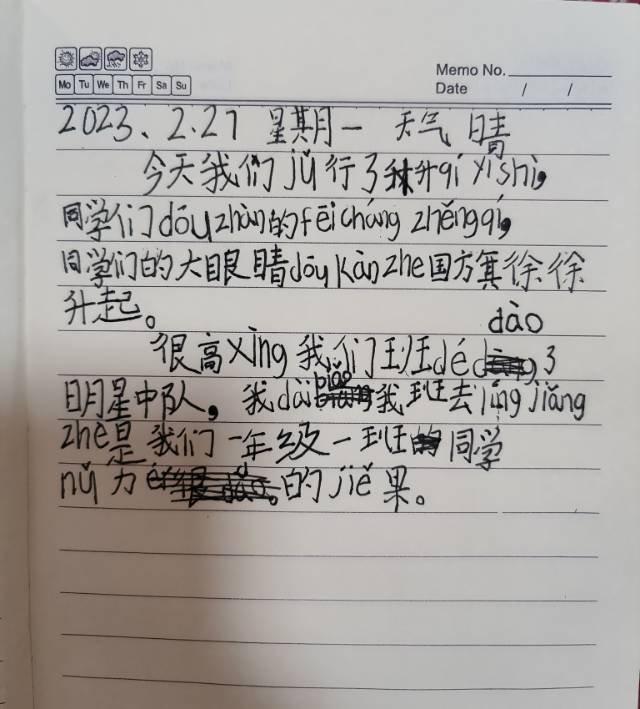 Memo No.
Mo Tu We Th Fr Sa Su
Date / /
2023、2.27 星期一 天气 晴
今天我们jǔ行了升qí yí shì,
同学们dōu zhàn的fēi cháng zhěng qí,
同学们的大眼睛dōu kàn zhe国方箕徐徐
升起。
dào
很高xìng我们班dé了
明星中队,我dài biǎo我班去lǐng jiǎng
zhè是我们一年级一班的同学
nǔ力的jié果。